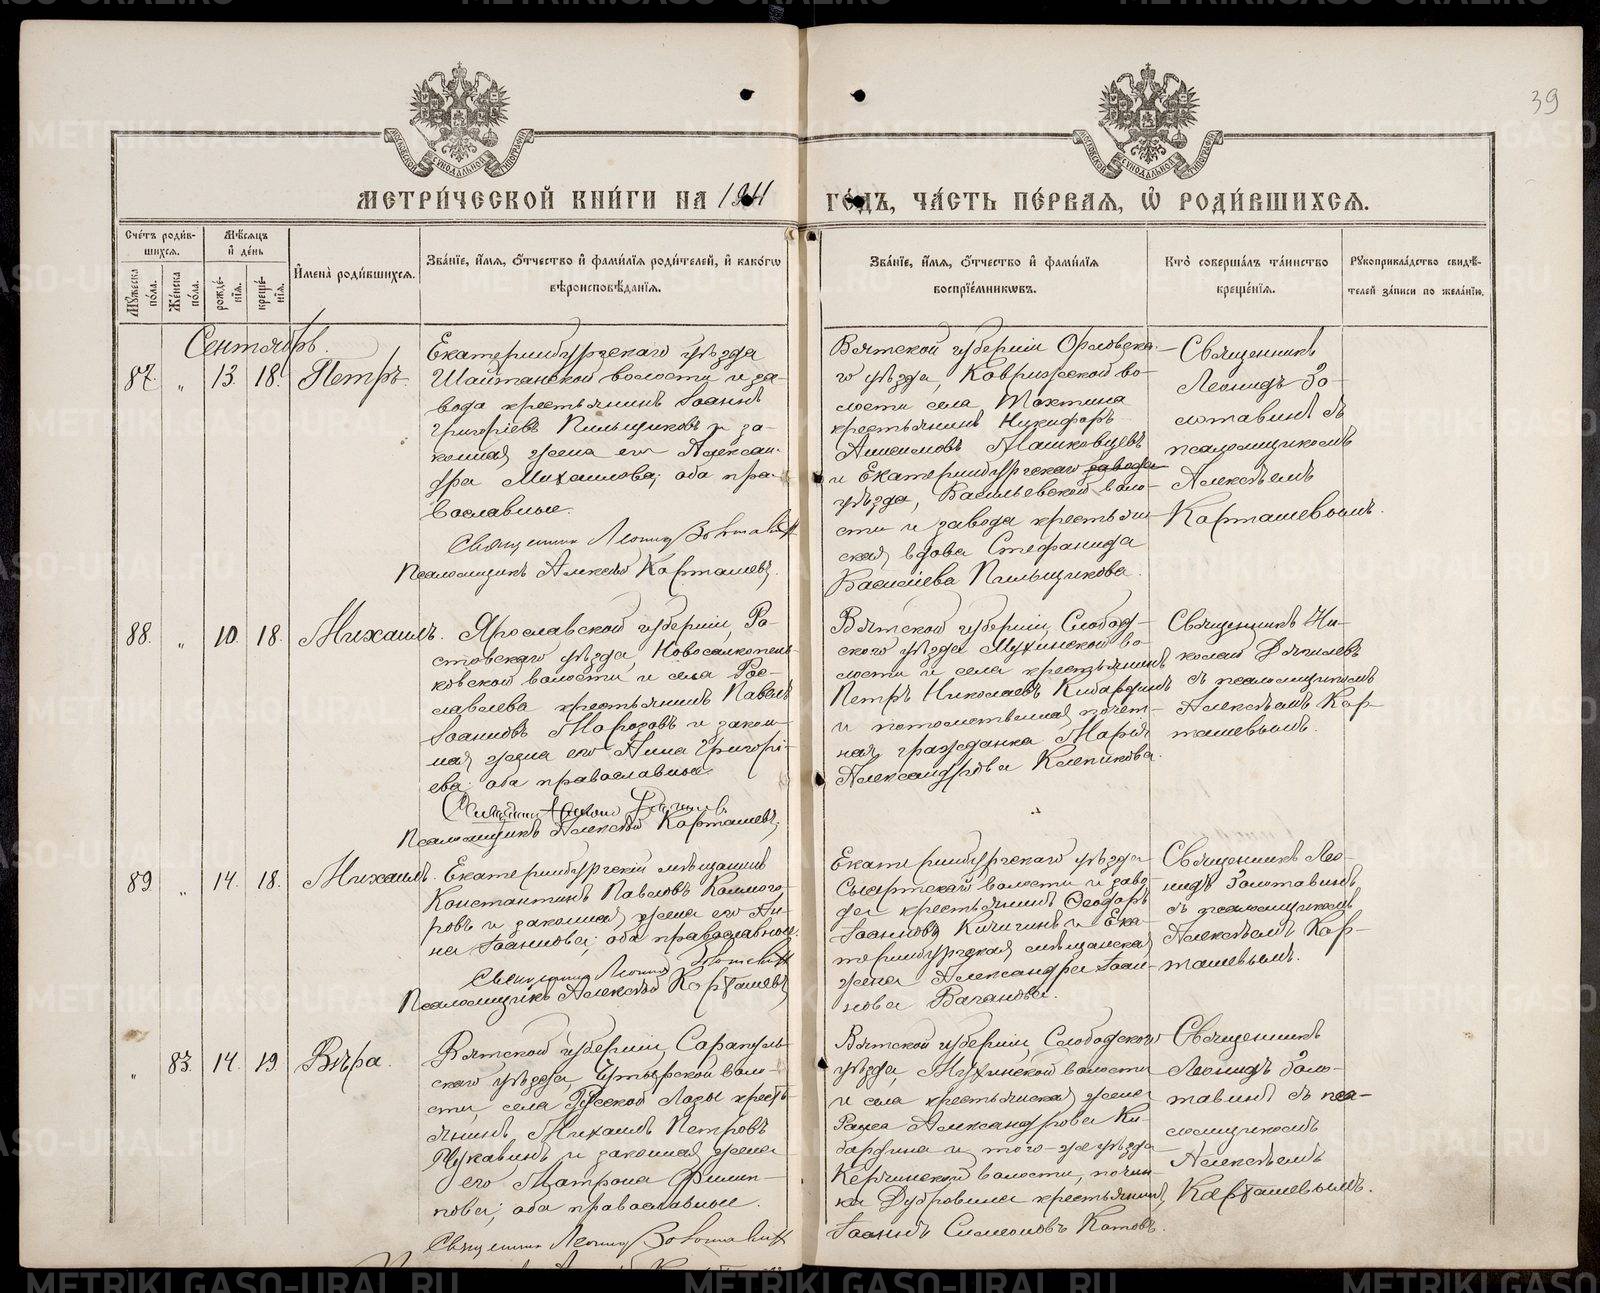 39
МЕТРИ́ЧЕСКОЙ КНИ́ГИ НА 1911 ГО́ДЪ, ЧА́СТЬ ПЕ́РВАЯ, Ѡ҆ РОДИ́ВШИХСЯ.
Сче́тъ роди́в-
шихся.
Мѣ́сяцъ
и҆ де́нь
Му́жеска по́ла.
Же́нска по́ла.
рожде́-
нїя.
креще́-
нїя.
И҆мена̀ роди́вшихся.
Зва́нїе, и҆́мя, ѻ҆́тчество и҆ фами́лїя роди́телей, и҆ како́гѡ
вѣроисповѣ́данїя.
Зва́нїе, и҆́мя, ѻ҆́тчество и҆ фами́лїя
воспрїе́мниковъ.
Кто̀ соверша́лъ та́инство
креще́нїя.
Рꙋкоприкла́дство свидѣ́-
телей за́писи по жела́нїю.
Сентябрь.
87. „ 13. 18. Петръ.
Екатеринбургскаго уѣзда
Шайтанской волости и за-
вода крестьянинъ Іоаннъ
Григоріевъ Пильщиковъ и за-
конная жена его Алексан-
дра Михаилова; оба пра-
вославные.
Священникъ Леонидъ Золотавинъ
Псаломщикъ Алексѣй Карташевъ.
Вятской губерніи Орловска-
го уѣзда, Ковришской во-
лости села
крестьянинъ Никифоръ
Анисимовъ Машковцевъ
и Екатеринбургскаго завода
уѣзда, Васильевской воло-
сти и завода крестьян-
ская вдова Стефанида
Василіева Пильщикова.
Священникъ
Леонидъ Зо-
лотавинъ съ
псаломщикомъ
Алексѣемъ
Карташевымъ.
88. „ 10 18. Михаилъ.
Ярославской губерніи, Ро-
стовскаго уѣзда,
волости и села
крестьянинъ Павелъ
Іоанновъ Морозовъ и закон-
ная жена его Анна Григорі-
ева; оба православные
Священникъ Николай
Псаломщикъ Алексѣй Карташевъ.
Вятской губерніи, Слобод-
ского уѣзда Мухинской во-
лости и села крестьянинъ
Петръ Николаевъ Кибардинъ
и потомственная почет-
ная гражданка Марія
Александрова Клепикова.
Священникъ Ни-
колай
съ псаломщикомъ
Алексѣемъ Кар-
ташевымъ.
89. „ 14. 18. Михаилъ.
Екатеринбургскій мѣщанинъ
Константинъ Павловъ Колмого-
ровъ и законная жена его Ан-
на Іоаннова; оба православные.
Священникъ Леонидъ Золотавинъ
Псаломщикъ Алексѣй Карташевъ
Екатеринбургскаго уѣзда
Сысертской волости и заво-
да крестьянинъ Ѳеодоръ
Іоанновъ Кичигинъ и Ека-
теринбургская мѣщанская
жена Александра Іоан-
нова Ваганова.
Священникъ Лео-
нидъ Золотавинъ
съ псаломщикомъ
Алексѣемъ Кар-
ташевымъ.
„ 83. 14. 19. Вѣра.
Вятской губерніи, Сарапуль-
скаго уѣзда, воло-
сти, села Русской Лозы кресть-
янинъ Михаилъ Петровъ
Чукавинъ и законная жена
его Матрона Филип-
пова; оба православные.
Священникъ Леонидъ Золотавинъ
Вятской губерніи, Слободского
уѣзда, Мухинской волости
и села крестьянская жена
Раиса Александрова Ки-
бардина и того-же уѣзда
волости, почин-
ка Дубровина крестьянинъ
Іоаннъ Симеоновъ Котовъ.
Священникъ
Леонидъ Золо-
тавинъ съ пса-
ломщикомъ
Алексѣемъ
Карташевымъ.